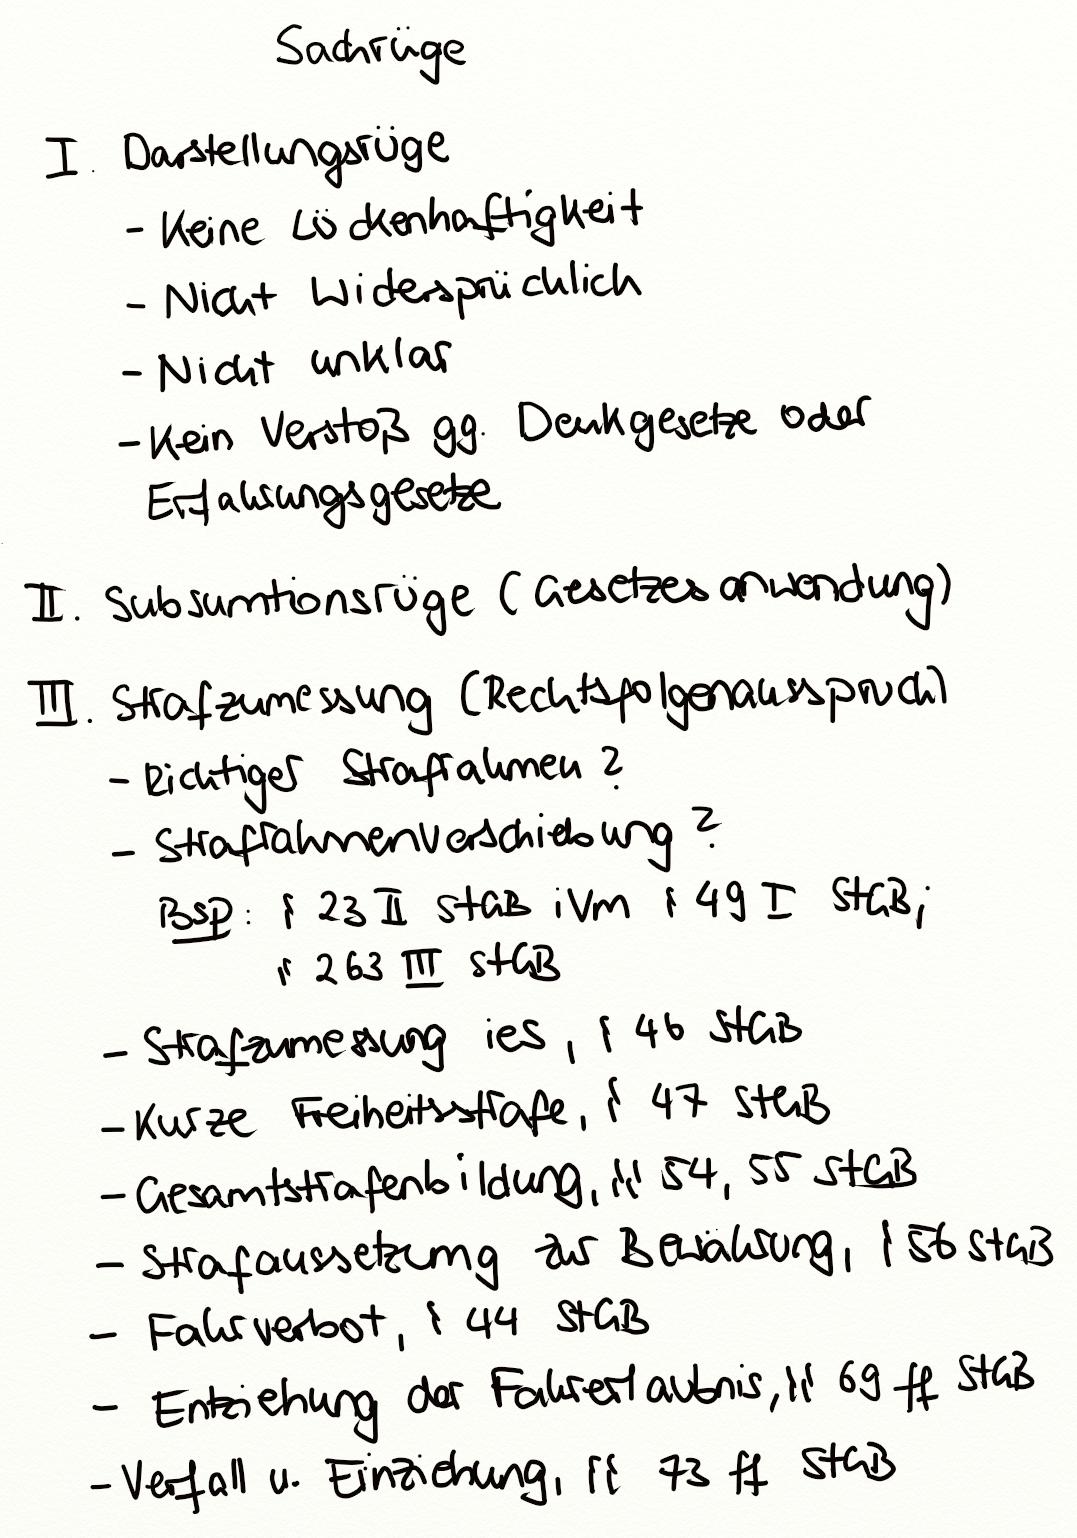 Sachrüge
I. Darstellungsrüge
- Keine Lückenhaftigkeit
- Nicht Widersprüchlich
- Nicht unklar
- Kein Verstoß gg. Denkgesetze oder
Erfahrungsgesetze
II. Subsumtionsrüge (Gesetzesanwendung)
III. Strafzumessung (Rechtsfolgenausspruch)
- Richtiger Strafrahmen?
- Strafrahmenverschiebung?
Bsp: § 23 II StGB iVm § 49 I StGB;
§ 263 III StGB
- Strafzumessung ieS, § 46 StGB
- Kurze Freiheitsstrafe, § 47 StGB
- Gesamtstrafenbildung, §§ 54, 55 StGB
- Strafaussetzung zur Bewährung, § 56 StGB
- Fahrverbot, § 44 StGB
- Entziehung der Fahrerlaubnis, §§ 69 ff StGB
- Verfall u. Einziehung, §§ 73 ff StGB